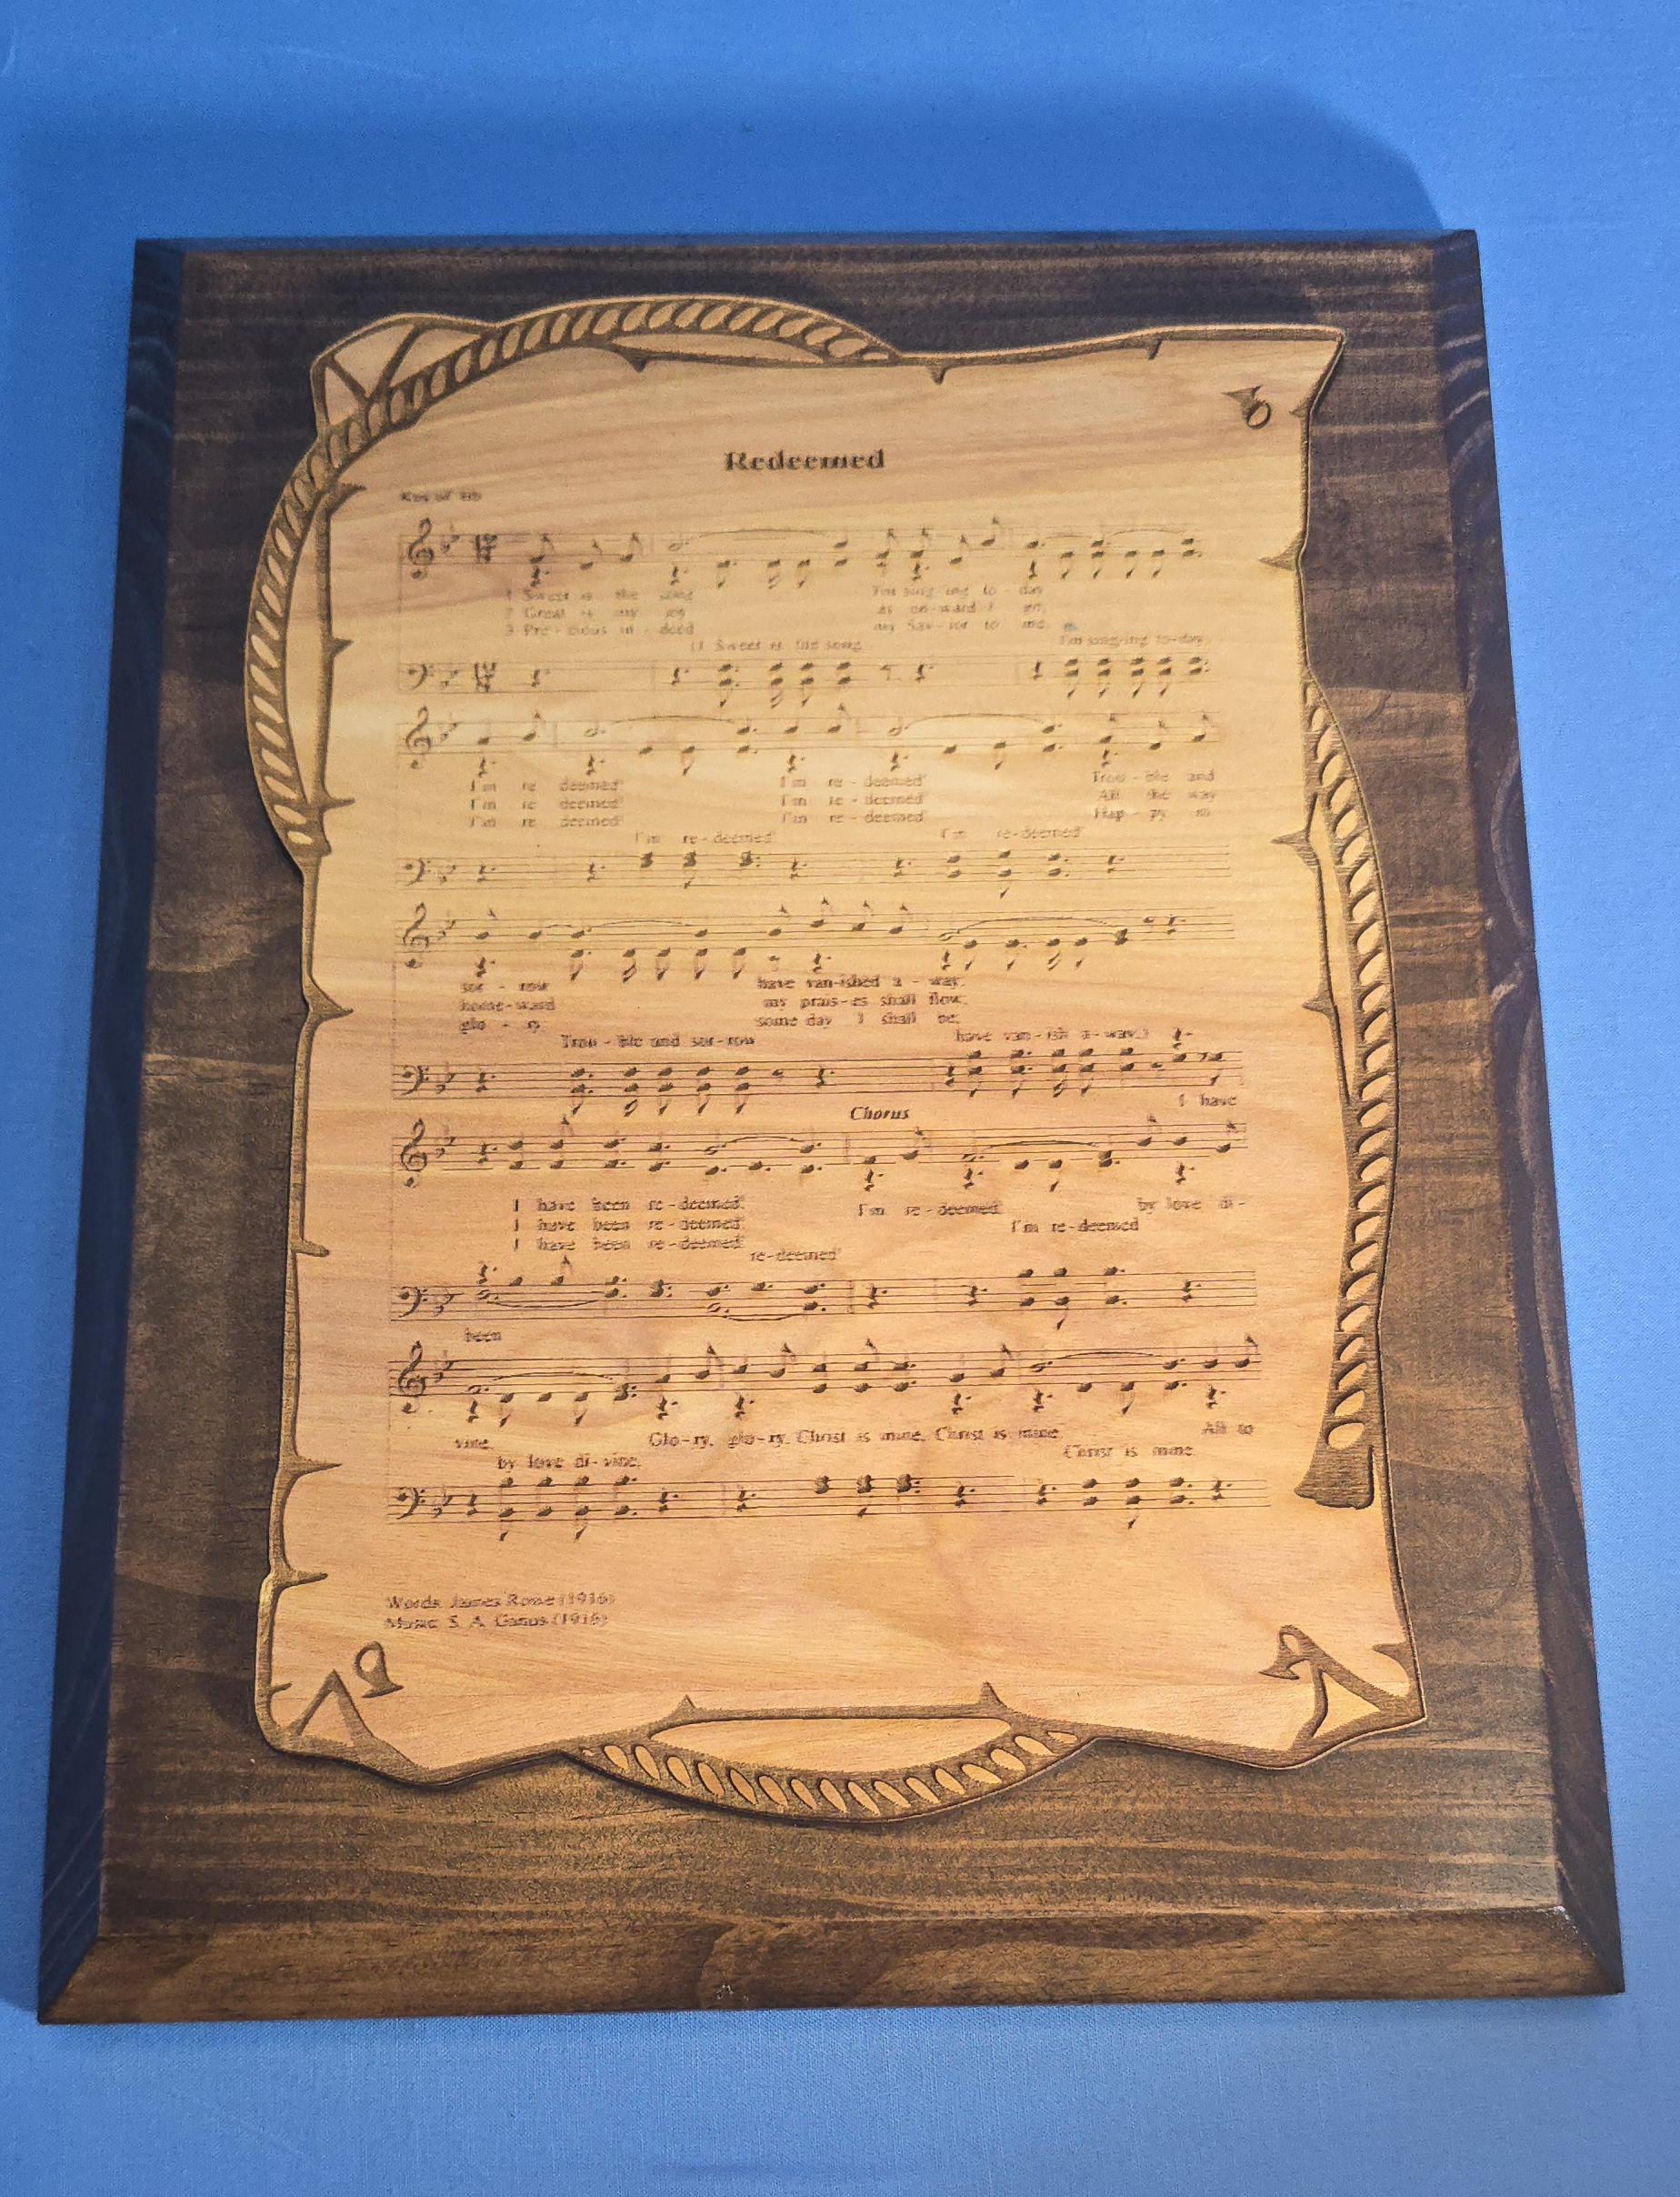 Redeemed
Key of Bb
1 Sweet is the song I'm sing-ing to-day
2 Great is my joy as on-ward I go,
3 Pre-cious in-deed my Sav-ior to me,
(1 Sweet is the song I'm sing-ing to-day,
I'm re deemed! I'm re-deemed! Trou-ble and
I'm re deemed! I'm re-deemed! All the way
I'm re deemed! I'm re-deemed! Hap-py in
I'm re-deemed! I'm re-deemed!
sor-row have van-ished a-way.
home-ward my prais-es shall flow.
glo-ry some day I shall be;
Trou-ble and sor-row have van-ish a-way.)
I have
Chorus
I have been re-deemed! I'm re-deemed by love di-
I have been re-deemed! I'm re-deemed
I have been re-deemed!
re-deemed!
been
vine, Glo-ry, glo-ry, Christ is mine, Christ is mine, All to
by love di-vine, Christ is mine,
Words: James Rowe (1916)
Music: S. A. Ganus (1916)